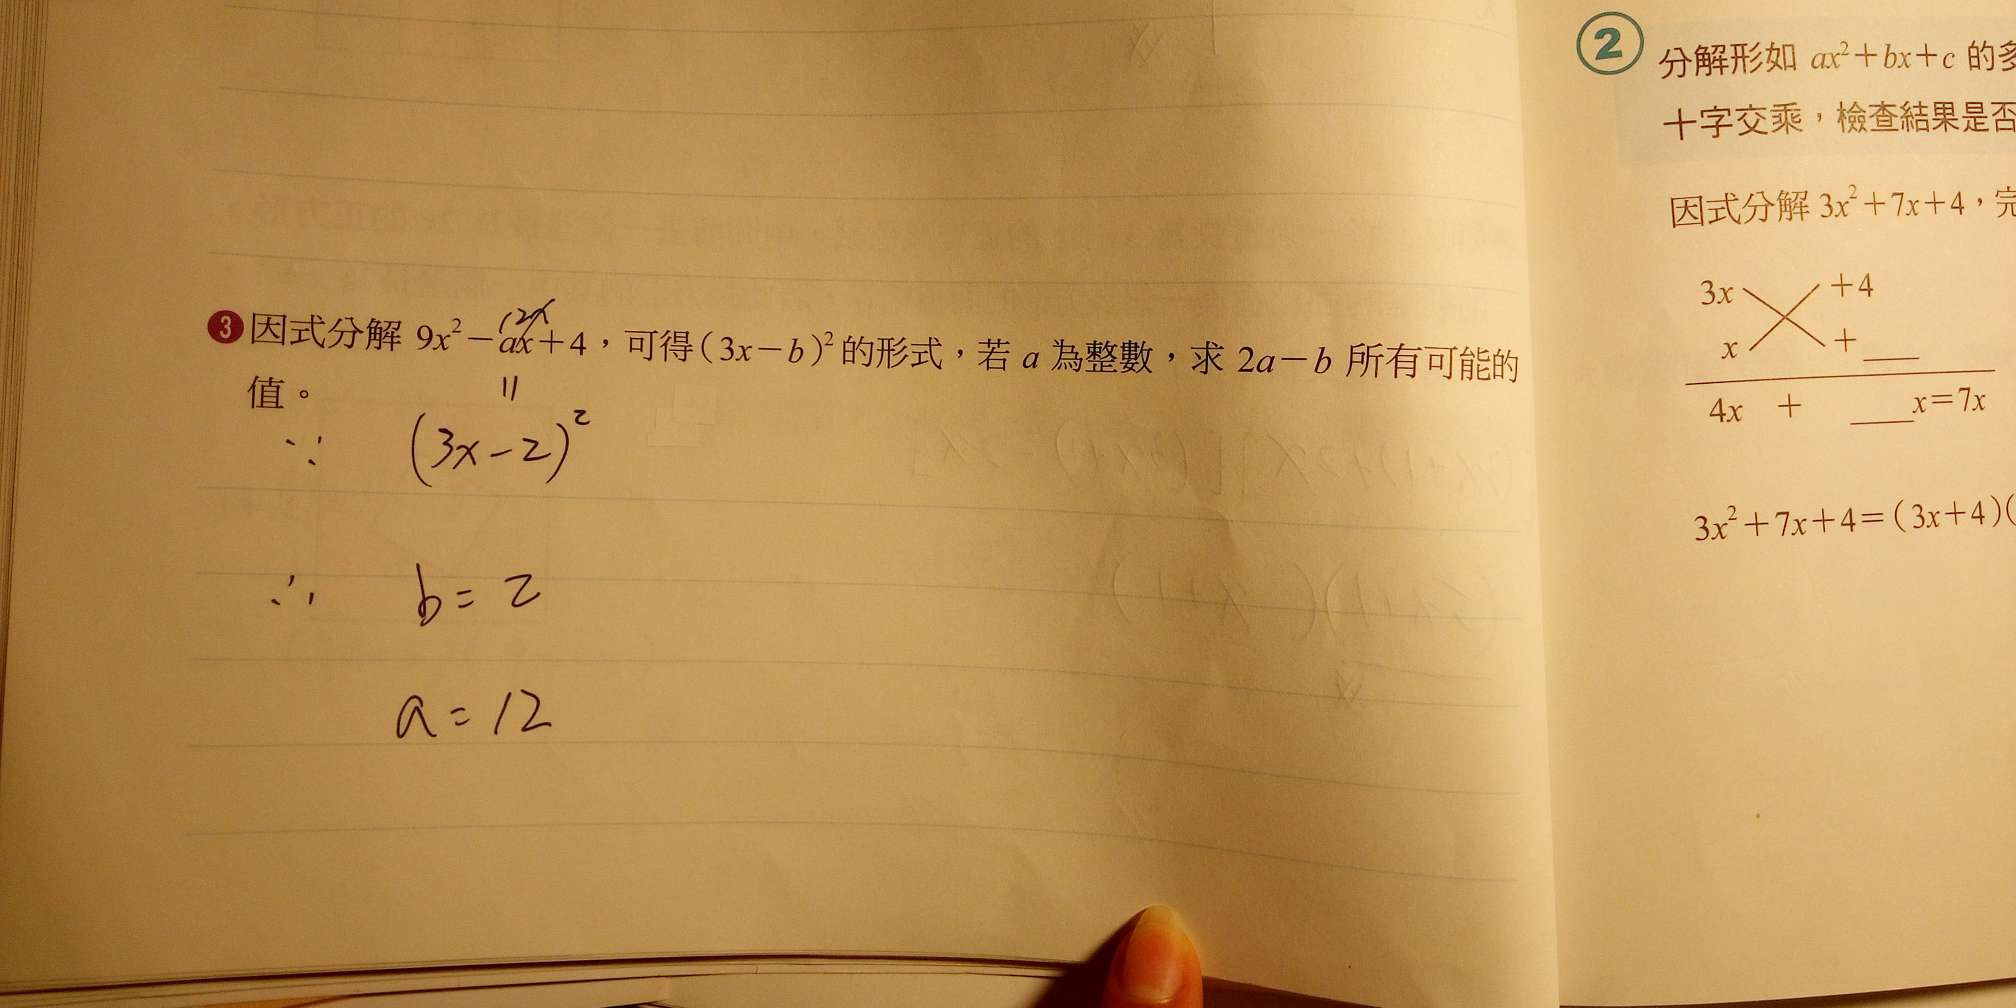 ❸因式分解 9x²－ax＋4，可得(3x－b)²的形式，若 a 為整數，求 2a－b 所有可能的
12x
值。
॥
∵ (3x－2)²
∴ b＝2
a＝12
② 分解形如 ax²＋bx＋c 的
十字交乘，檢查結果是否
因式分解 3x²＋7x＋4，
3x ＋4
x ＋___
4x ＋ ___x＝7x
3x²＋7x＋4＝(3x＋4)(